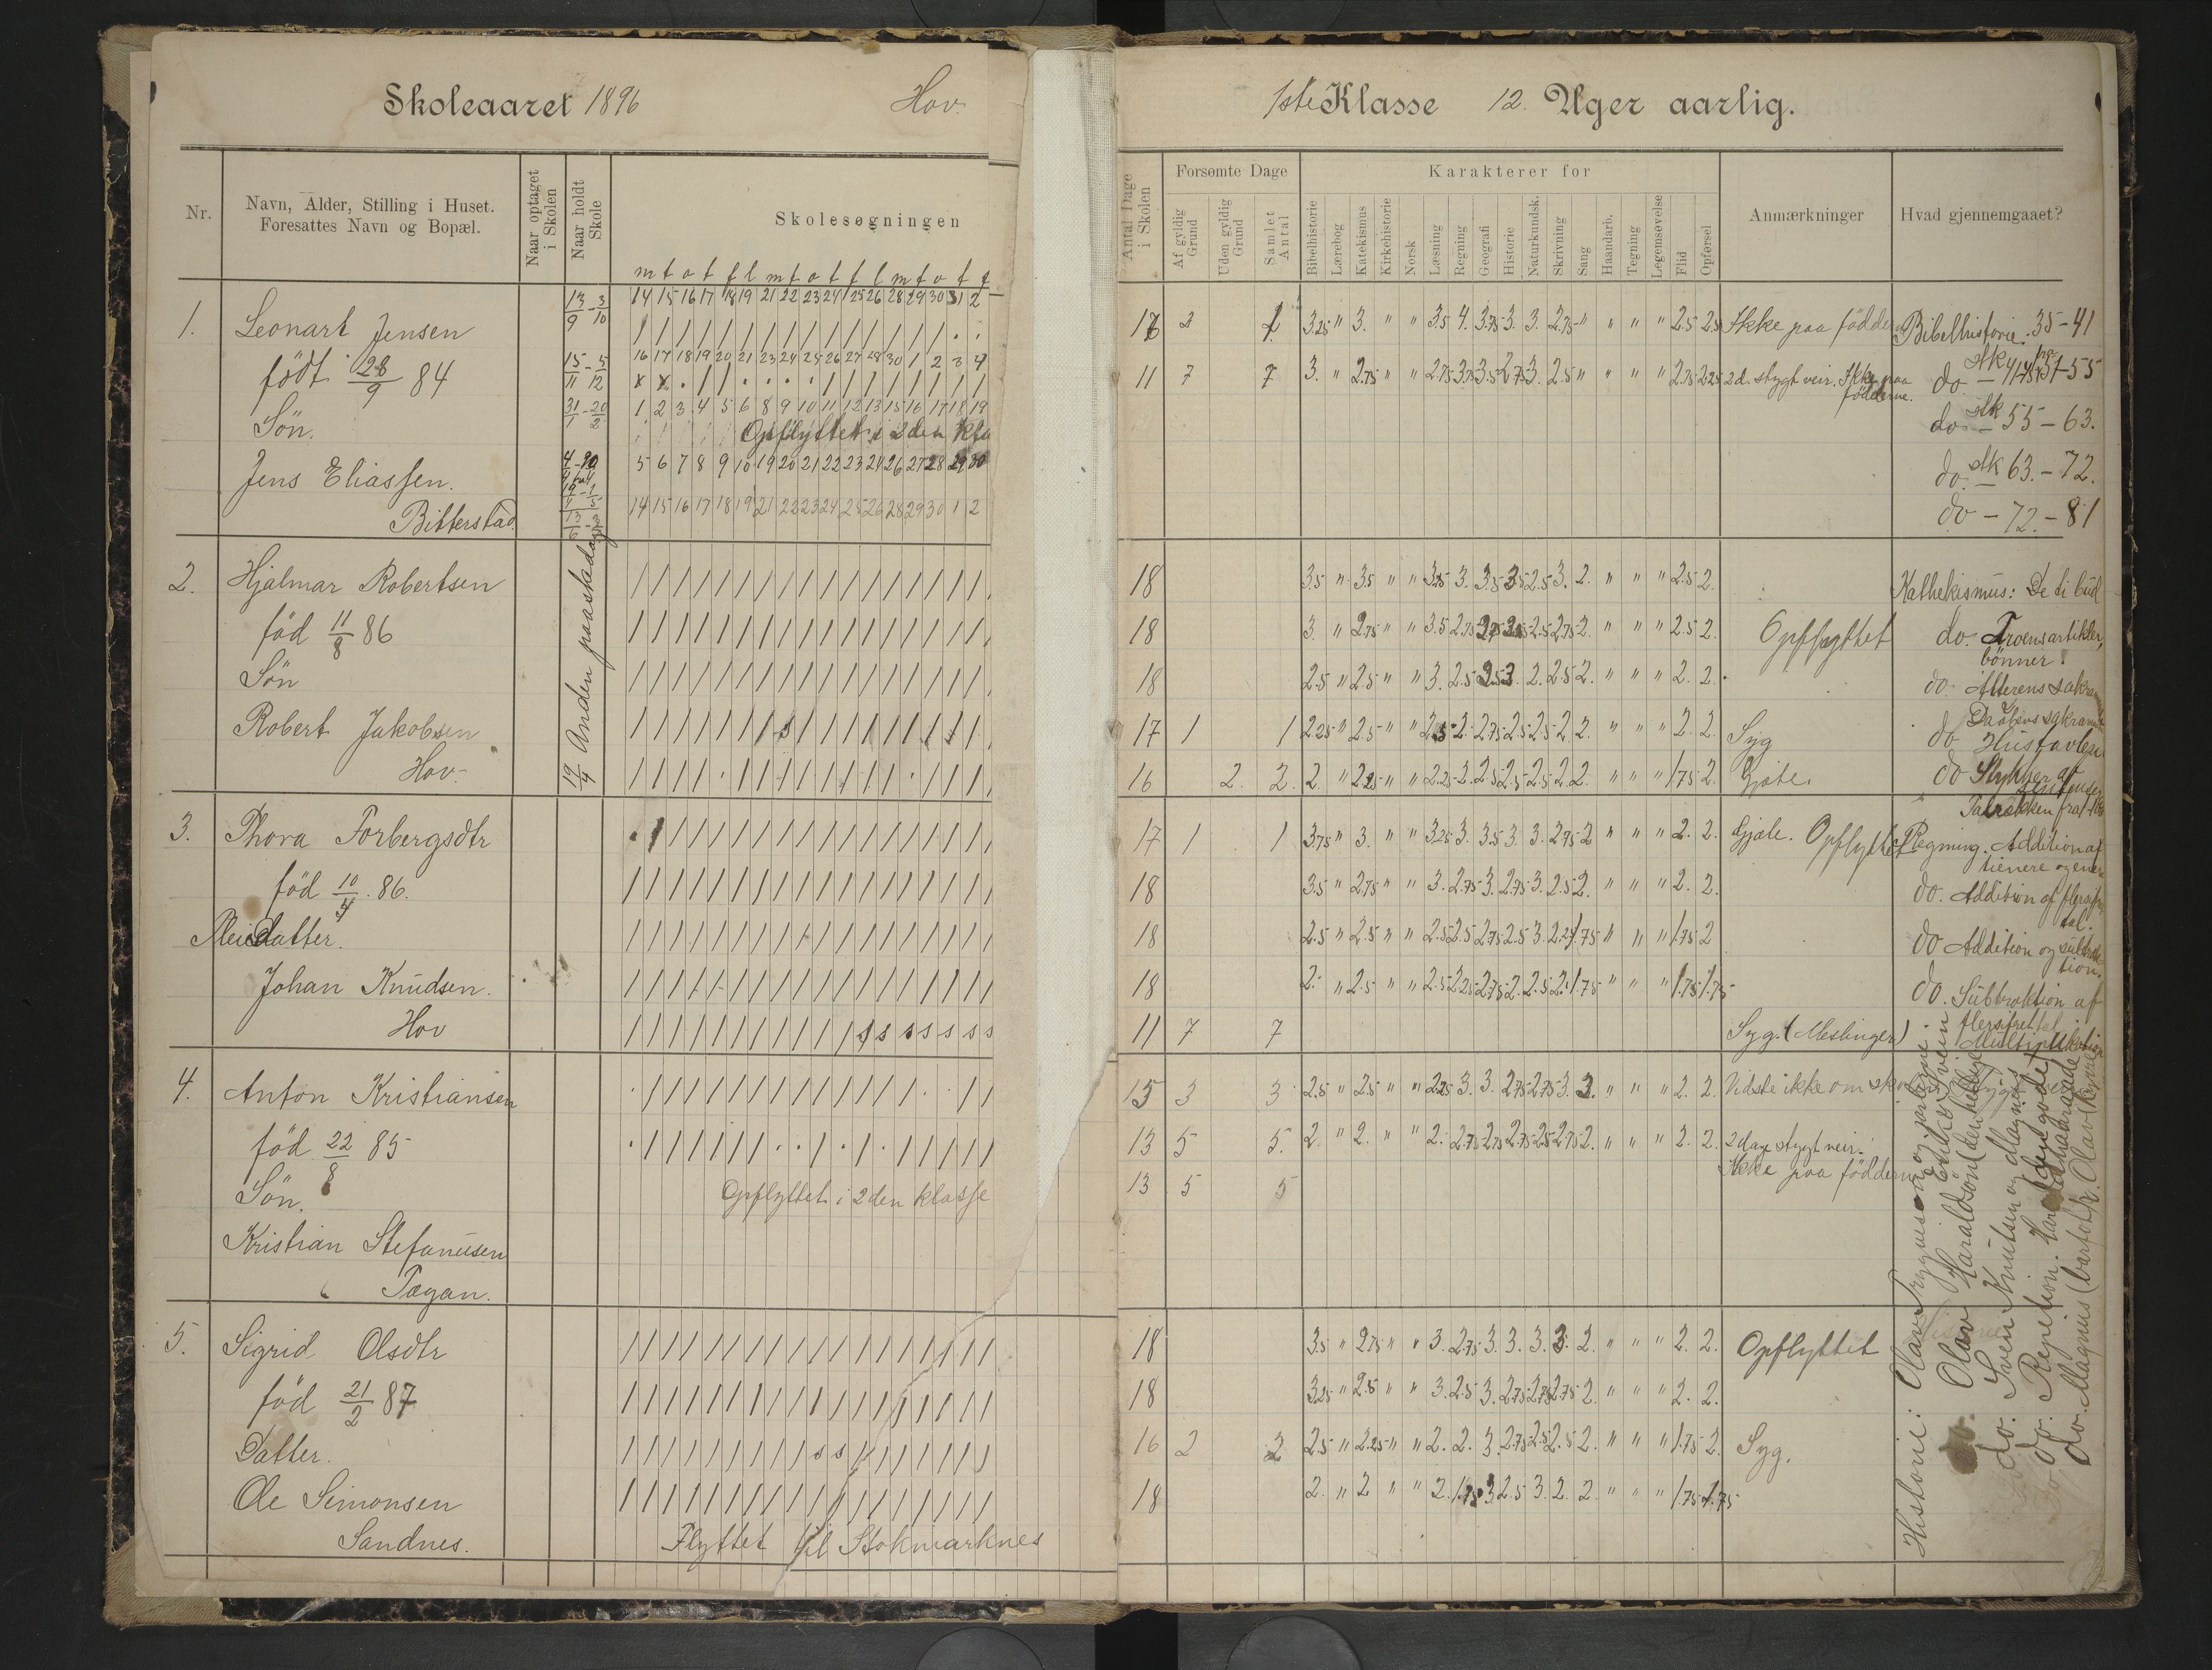 Skoleaaret 1896 Hov.
Nr.
Navn, Alder, Stilling i Huset.
Foresattes Navn og Bopæl.
Naar optaget
i Skolen
Naar holdt
Skole
Skolesøgningen
m t o t f l m t o t f l m t o t f
13/9 - 3/10 14 15 16 17 18 19 21 22 23 24 25 26 28 29 30 31 2
1. Leonart Jensen
15/11 - 5/12 16 17 18 19 20 21 23 24 25 26 27 28 30 1 2 3 4
født 28/9 84
31/1 - 20/2 1 2 3 4 5 6 8 9 10 11 12 13 15 16 17 18 19
Søn.
Opflyttet i 2den
5 6 7 8 9 10 19 20 21 22 23 24 26 27 28 29 30
Jens Eliassen.
14 15 16 17 18 19 21 22 23 24 25 26 28 29 30 1 2
Bitterstad
2. Hjalmar Robertsen
fød 11/8 86
Søn
Robert Jakobsen
Hov.
19/4 Anden paaskedag
3. Thora Torbergsdtr
fød 10/4 86.
Pleiedatter.
Johan Knudsen.
Hov
4. Anton Kristiansen
fød 22/8 85
Søn.
Opflyttet i 2den klasse
Kristian Stefanusen
Tægan.
5. Sigrid Olsdtr
fød 21/2 87
Datter.
Ole Simonsen
Sandnes.
Flyttet til Stokmarknes
1ste Klasse 12. Uger aarlig.
Antal Dage
i Skolen
Forsømte Dage
Af gyldig
Grund
Uden gyldig
Grund
Samlet
Antal
Karakterer for
Bibelhistorie
Lærebog
Katekismus
Kirkehistorie
Norsk
Læsning
Regning
Geografi
Historie
Naturkundsk.
Skrivning
Sang
Haandarb.
Tegning
Legemsøvelse
Flid
Opførsel
Anmærkninger
Hvad gjennemgaaet?
3.25 " 3. " " 3.5 4. 3.75 3. 3. 2.75 " " " " 2.5 2.5 Ikke paa fødderne Bibelhistorie: 35-41
11 7 7 3. " 2.75 " " 2.75 3.75 3.5 2.75 3. 2.5 " " " " 2.75 2.25 2 d. stygt veir. Ikke paa
fødderne.
do stk 55 - 63.
do. stk 63. - 72.
do - 72. - 81
18 3.5 " 3.5 " " 3.25 3. 3.5 3.5 2.5 3. 2. " " " 2.5 2. Kathekismus: De ti bud
18 3. " 2.75 " " 3.5 2.75 2.5 2.75 2. " " " 2.5 2. Opflyttet do. Troens artikler,
bønner.
18 2.5 " 2.5 " " 3. 2.5 3. 2. 2.5 2. " " " 2. 2. do. Alterens sakram
Daabens sakram
17 1 1 2.25 " 2.5 " " 2.5 2. 2.75 2.5 2.5 2. 2. " " " 2. 2. Syg do Hustavlen
16 2. 2. 2. " 2.25 " " 2.25 2. 2.5 2.5 2.5 2. 2. " " " 1.75 2. Gjæte. do Stykker af
17 1 1 3.75 " 3. " " 3.25 3. 3.5 3. 3. 2.75 2 " " " 2. 2. Gjæte. Opflyttet Regning. Addition af
tienere og enere
18 3.5 " 2.75 " " 3. 2.75 3. 2.75 3. 2.5 2. " " " 2. 2. do. Addition af flersifr
tal.
18 2.5 " 2.5 " " 2.5 2.5 2.75 2.5 3. 2.25 1.75 " " " 1.75 2 do Addition og subtrak
tion.
18 2. " 2.5 " " 2.5 2.25 2.75 2. 2.5 2. 1.75 " " " 1.75 1.75 do. Subtraktion af
flersifret tal.
11 7 7 Syg. (Meslinger) Multiplikation
15 3 3 2.5 " 2.5 " " 2.25 3. 3. 2.75 2.75 3. 3. " " " 2. 2. Vidste ikke om sko
13 5 5. 2. " 2. " " 2. 2.75 2.75 2.75 2.5 2.75 2. " " " 2. 2. 2 dage stygt veir.
Ikke paa fødderne
13 5 5
18 3.5 " 2.75 " " 3. 2.75 3. 3. 3. 3. 2. " " " 2. 2. Opflyttet
18 3.25 " 2.5 " " 3. 2.5 3. 2.75 2.75 2.75 2. " " " 2. 2.
16 2 2 2.5 " 2.25 " " 2. 2. 3. 2.75 2.5 2.5 2. " " " 1.75 2. Syg.
18 2. " 2 " " 2. 1.75 3. 2.5 3. 2. 2. " " " 1.75 1.75
Historie: Olav Trygvesøn
Olav Haraldsøn (den hellige)
do. Sven Knutsen og Magnus
do. Repetition.
do. Magnus barfot